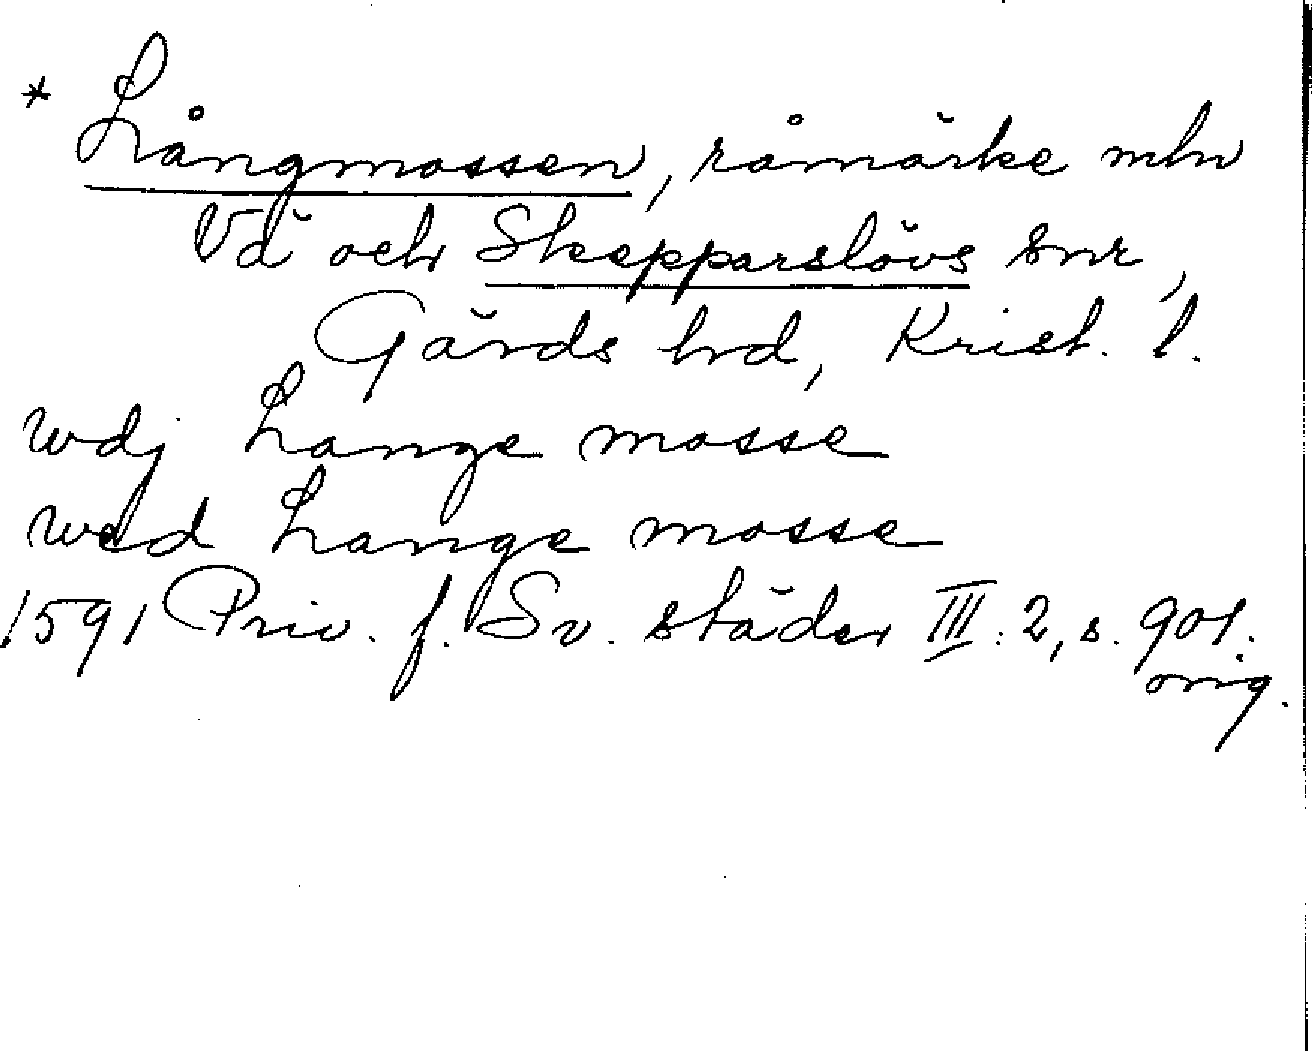 * Långmossen, råmärke mln
Vä och Skepparslövs snr,
Gärds hrd, Krist. l.
wdj Lange mosse
wed Lange mosse
1591 Priv. f. Sv. städer III:2, s. 901.
orig.